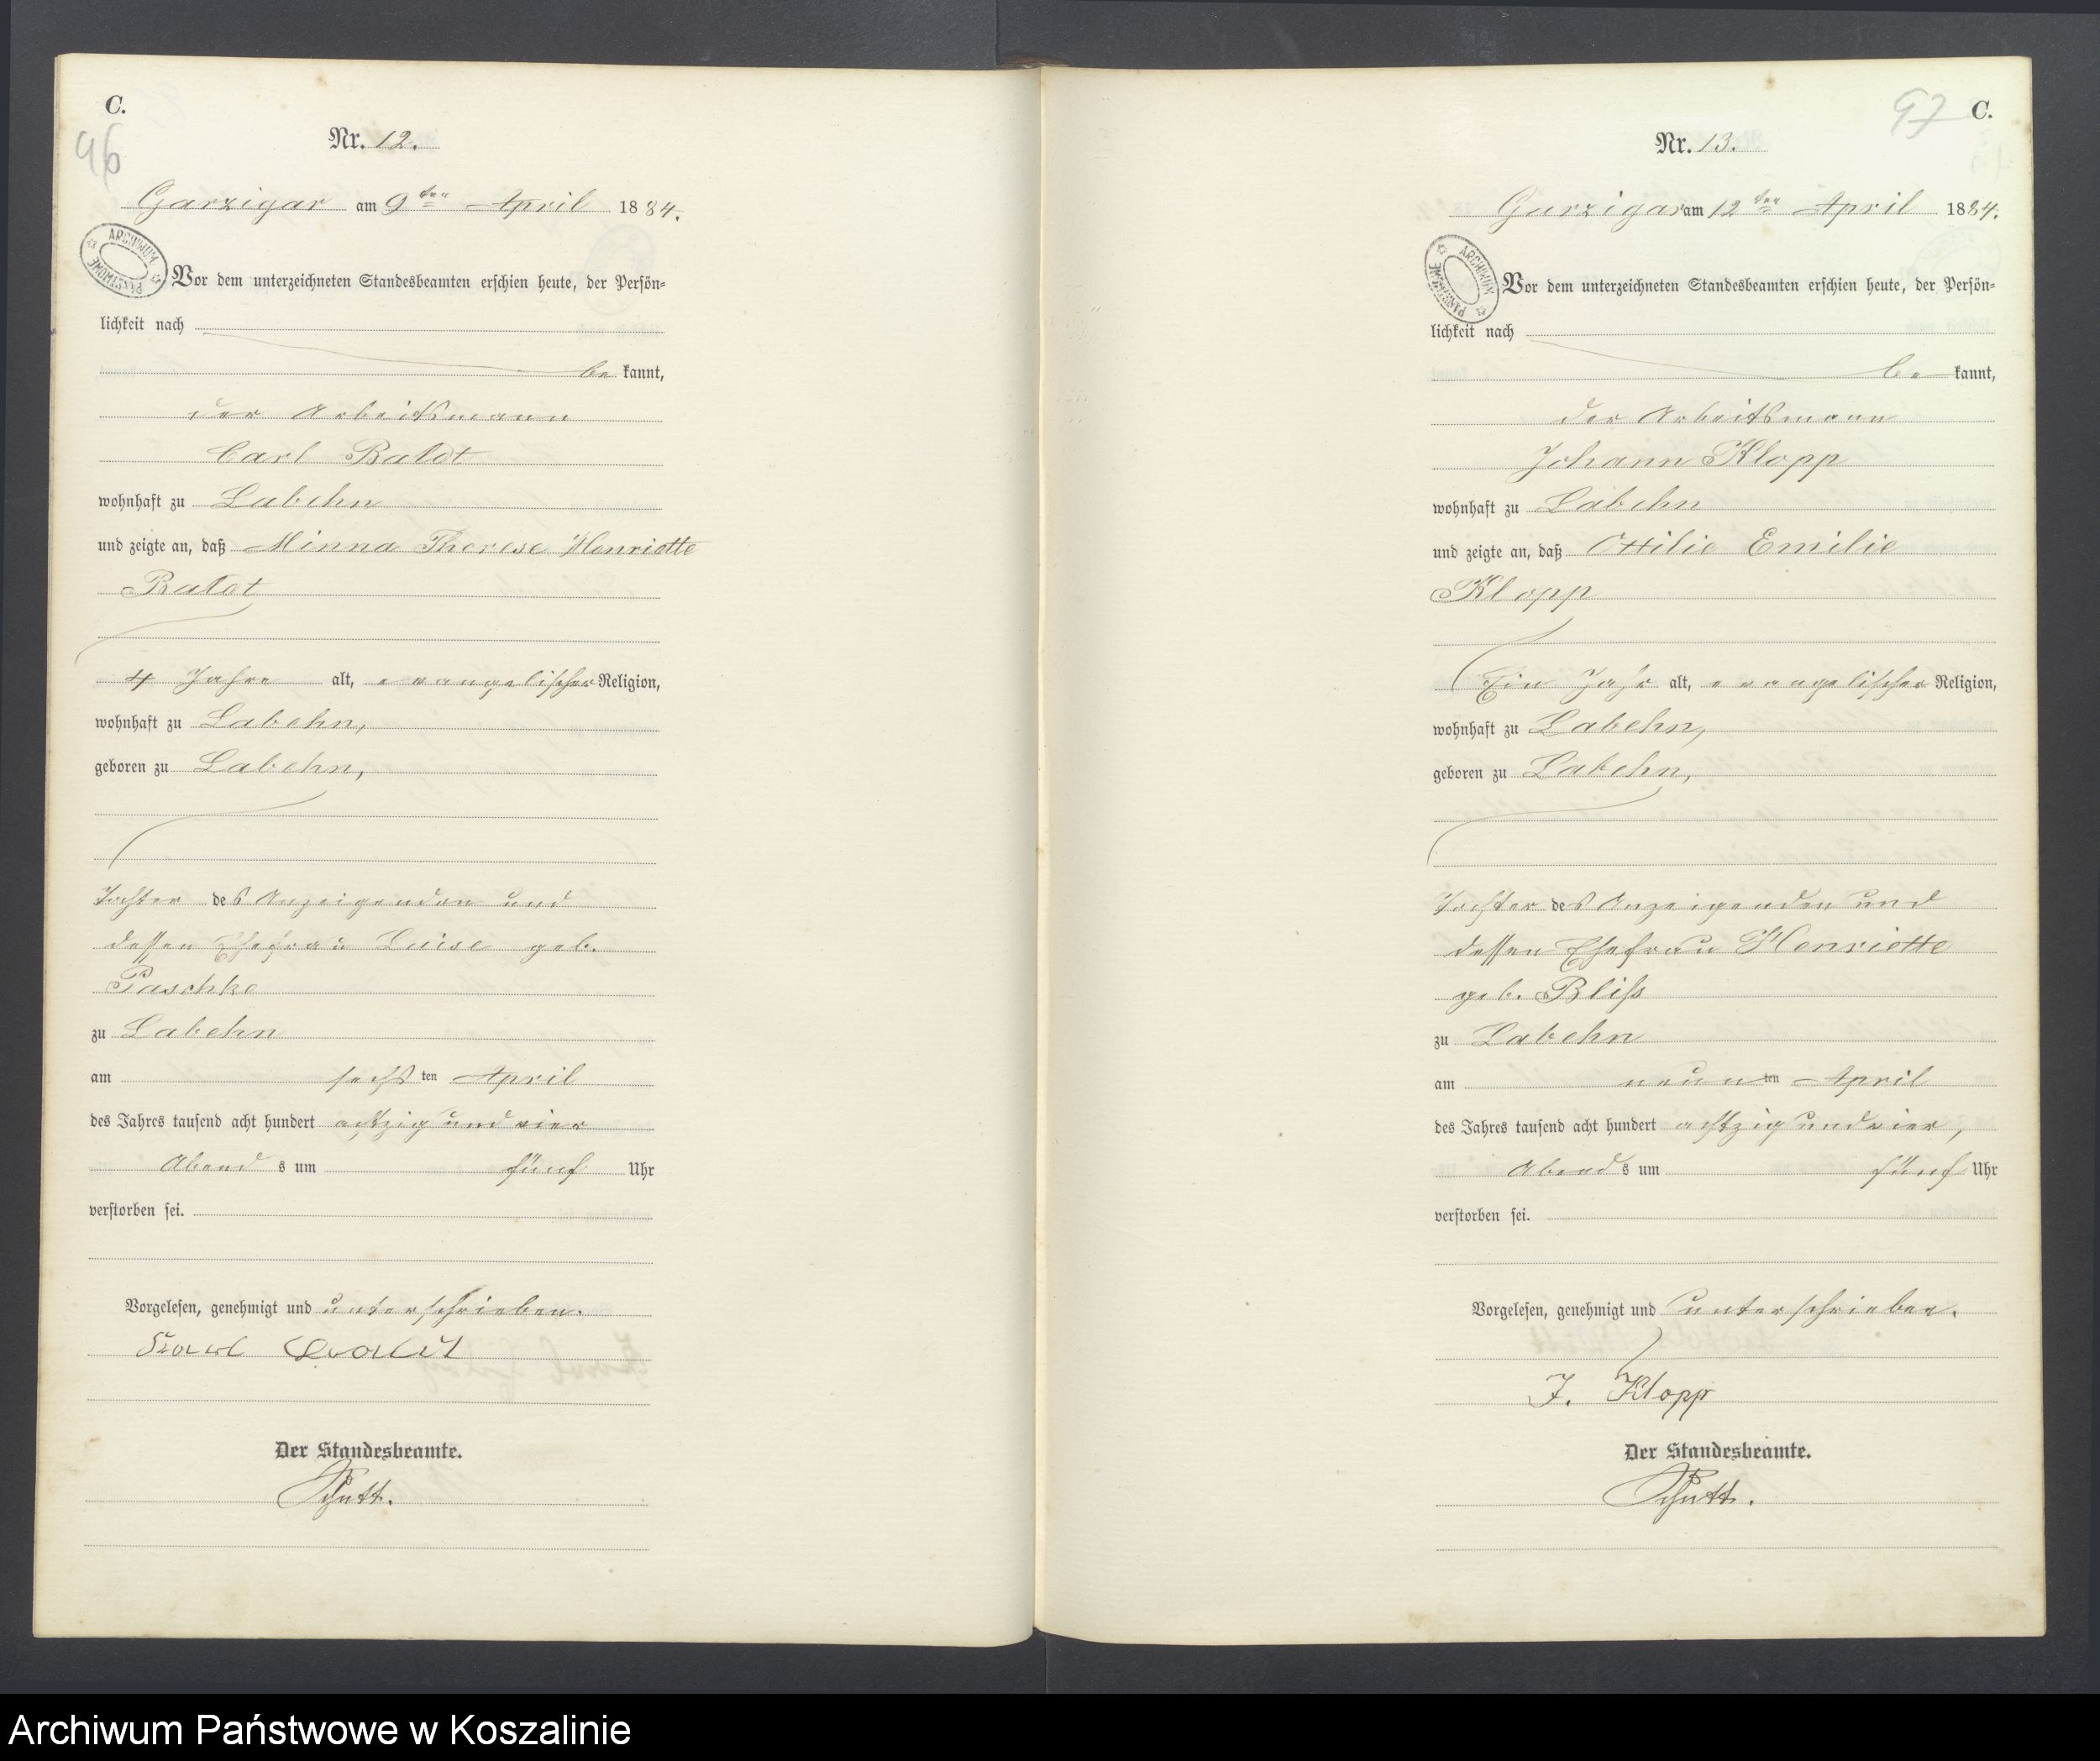 C.
96
Nr. 12.
Garzigar am 9ten April 1884.
ARCHIWUM PAŃSTWOWE
Vor dem unterzeichneten Standesbeamten erschien heute, der Persön-
lichkeit nach
be kannt,
der Arbeitsmann
Carl Baldt
wohnhaft zu Labehn
und zeigte an, daß Minna Therese Henriette
Baldt
4 Jahre alt, evangelischer Religion,
wohnhaft zu Labehn,
geboren zu Labehn,
Tochter des Anzeigenden und
dessen Ehefrau Luise geb.
Paschke
zu Labehn
am sechsten April
des Jahres tausend acht hundert achtzig und vier
Abends um fünf Uhr
verstorben sei.
Vorgelesen, genehmigt und unterschrieben.
Karl
Der Standesbeamte.
97
C.
Nr. 13.
Garzigar am 12ten April 1884.
ARCHIWUM PAŃSTWOWE
Vor dem unterzeichneten Standesbeamten erschien heute, der Persön-
lichkeit nach
be kannt,
der Arbeitsmann
Johann Klopp
wohnhaft zu Labehn
und zeigte an, daß Ottilie Emilie
Klopp
Ein Jahr alt, evangelischer Religion,
wohnhaft zu Labehn,
geboren zu Labehn,
Tochter des Anzeigenden und
dessen Ehefrau Henriette
geb. Bliß
zu Labehn
am neunten April
des Jahres tausend acht hundert achtzig und vier,
Abends um fünf Uhr
verstorben sei.
Vorgelesen, genehmigt und unterschrieben.
J. Klopp
Der Standesbeamte.
Archiwum Państwowe w Koszalinie